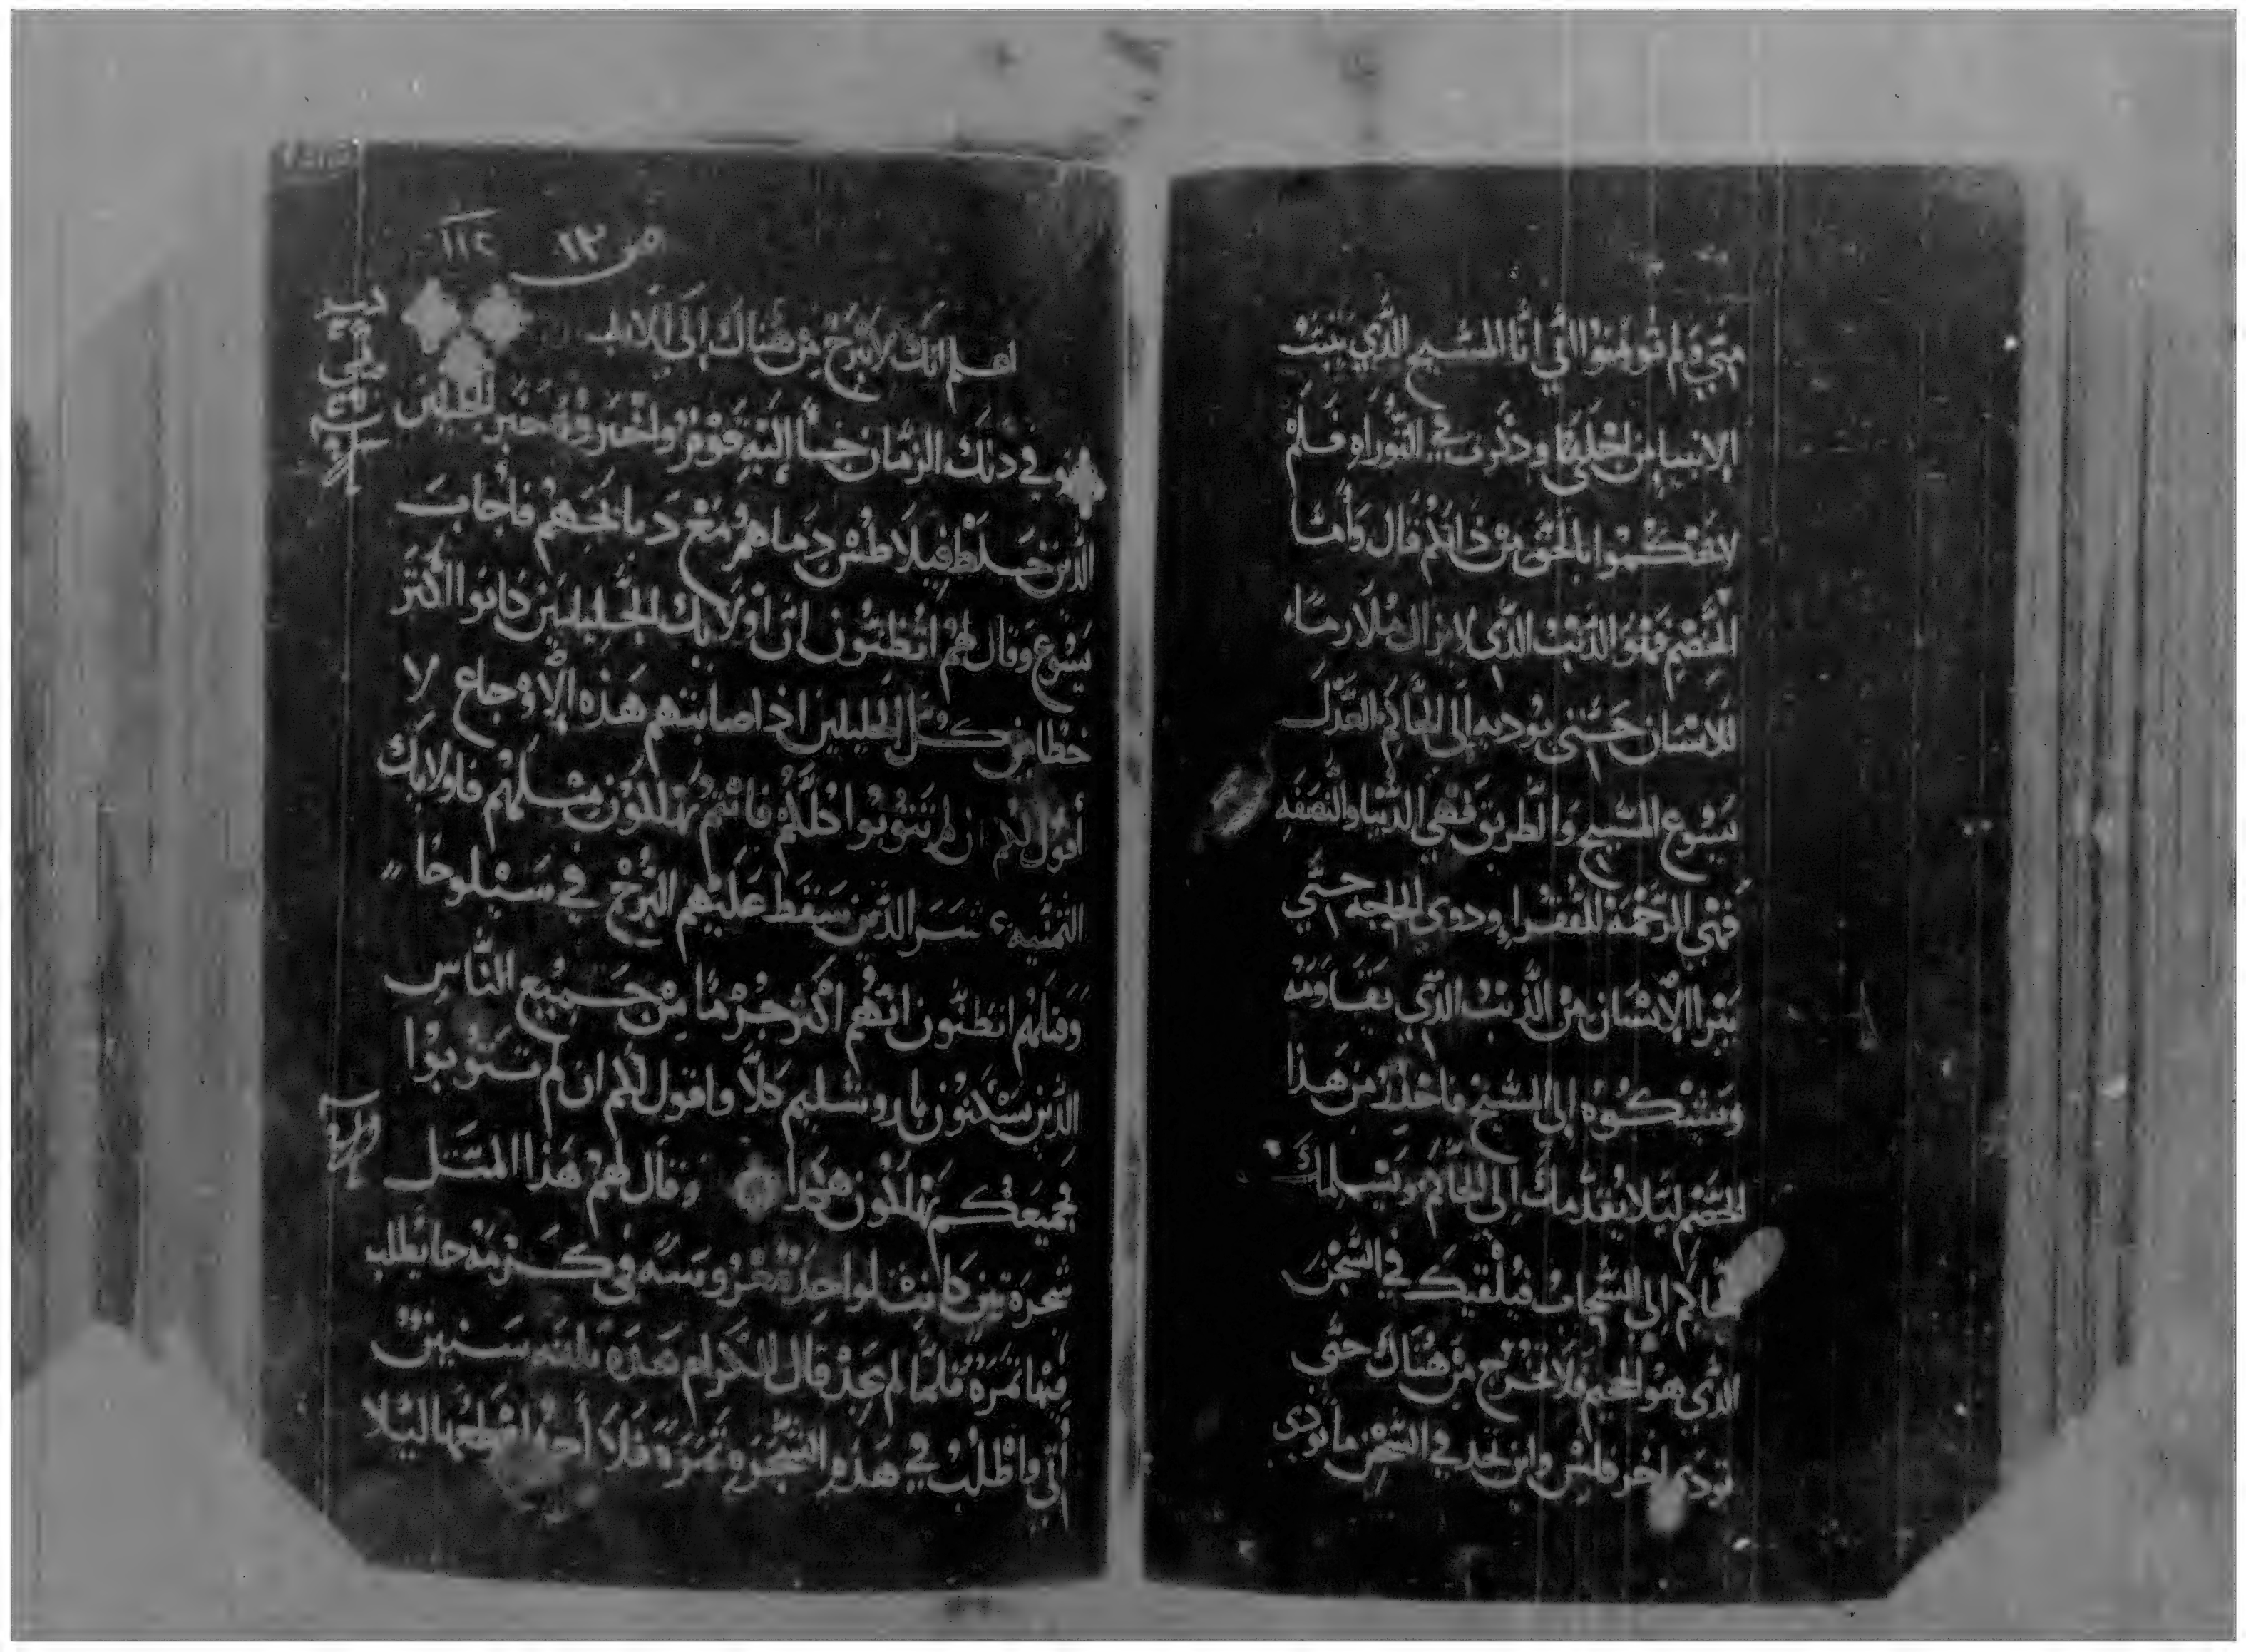 مني ولم تومنوا اني انا المسيح الذي تنبت
الانبيا من اجلي وذكرت في التوراه فلم
لا تحكموا بالحق من ذاتكم قال وأما
الخصم فهو الذنب الذي لا يزال ملازماً
للانسان حتى يوديه إلى الحاكم العدل
يسوع المسيح والطريق فهي الدنيا والنصفه
فهي الرحمة للفقراء وذوي الحاجه حتي
يتبرا الإنسان من الذنب الذي يقاومه
ويشكوه إلى المسيح فاحذر من هذا
الخصم ليلا يقدمك إلى الحاكم ويسلمك
الحاكم إلى السجان فيلقيك في السجن
الذي هو الجحيم فلا تخرج من هناك حتى
تودي اخر فلس واين تجد في السجن ما تودي
ص ١٣ ١١٤
اعلم انك لا تبرح من هناك إلى الابد
في ذلك الزمان جا إليه قوم واخبروه خبر الجليليين
الذين خلط فيلاطس دماهم مع دما ذبايحهم فأجاب
يسوع وقال لهم اتظنون ان أولايك الجليليين كانوا أكثر
خطا من كل الجليليين اذ اصابتهم هذه الأوجاع لا
أقول لكم ان لم تتوبوا كلكم فانتم تهلكون مثلهم فاولايك
الثمنيه عشر الذين سقط عليهم البرج في سيلوحا
وقتلهم اتظنون انهم اكثر جرماً من جميع الناس
الذين يسكنون باروشليم كلا واقول لكم ان لم تتوبوا
جميعكم تهلكون هكذا وقال لهم هذا المثل
شجرة تين كانت لواحد مغروسه في كرمه جا يطلب
فيها ثمرة فلما لم يجد قال للكرام هذه ثلثه سنين
أتي واطلب في هذه الشجره ثمرة فلا أجد اقطعها ليلا